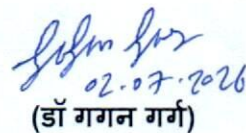 02.07.2026
(डॉ गगन गर्ग)